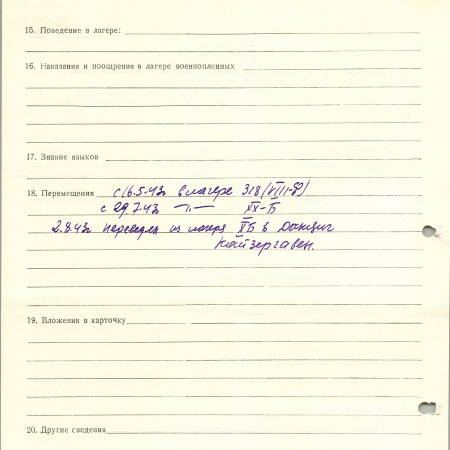 15. Поведение в лагере:
16. Наказание и поощрения в лагере военнопленных
17. Знание языков
18. Перемещения с 16.5.43г в лагере 318 (VIII-Ф)
с 29.7.43г —"— XX-Б
2.8.43г переведен из лагеря XXБ в Данциг
Кайзергавен.
19. Вложения в карточку
20. Другие сведения